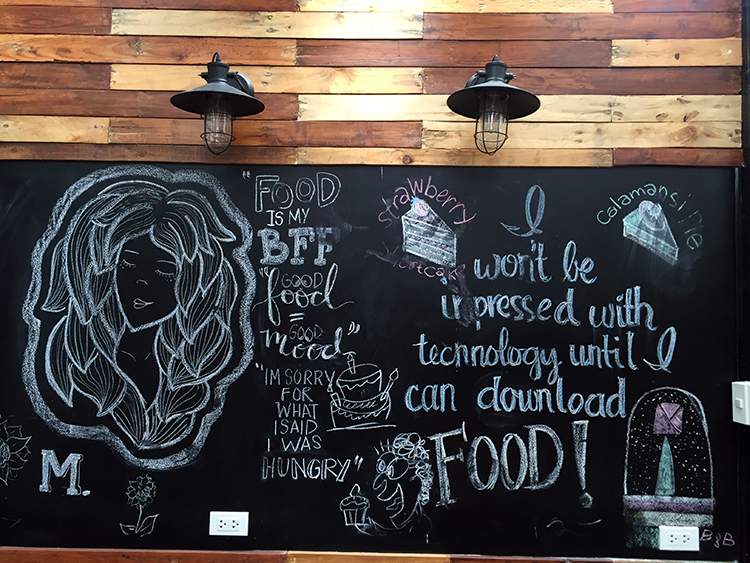 "FOOD
IS MY
BFF
"GOOD
food
=
GOOD
mood"
"IM SORRY
FOR
WHAT
I SAID
I WAS
HUNGRY"
M.
strawberry
shortcake
I
won't be
impressed with
technology until I
can download
FOOD!
calamansi pie
B & B